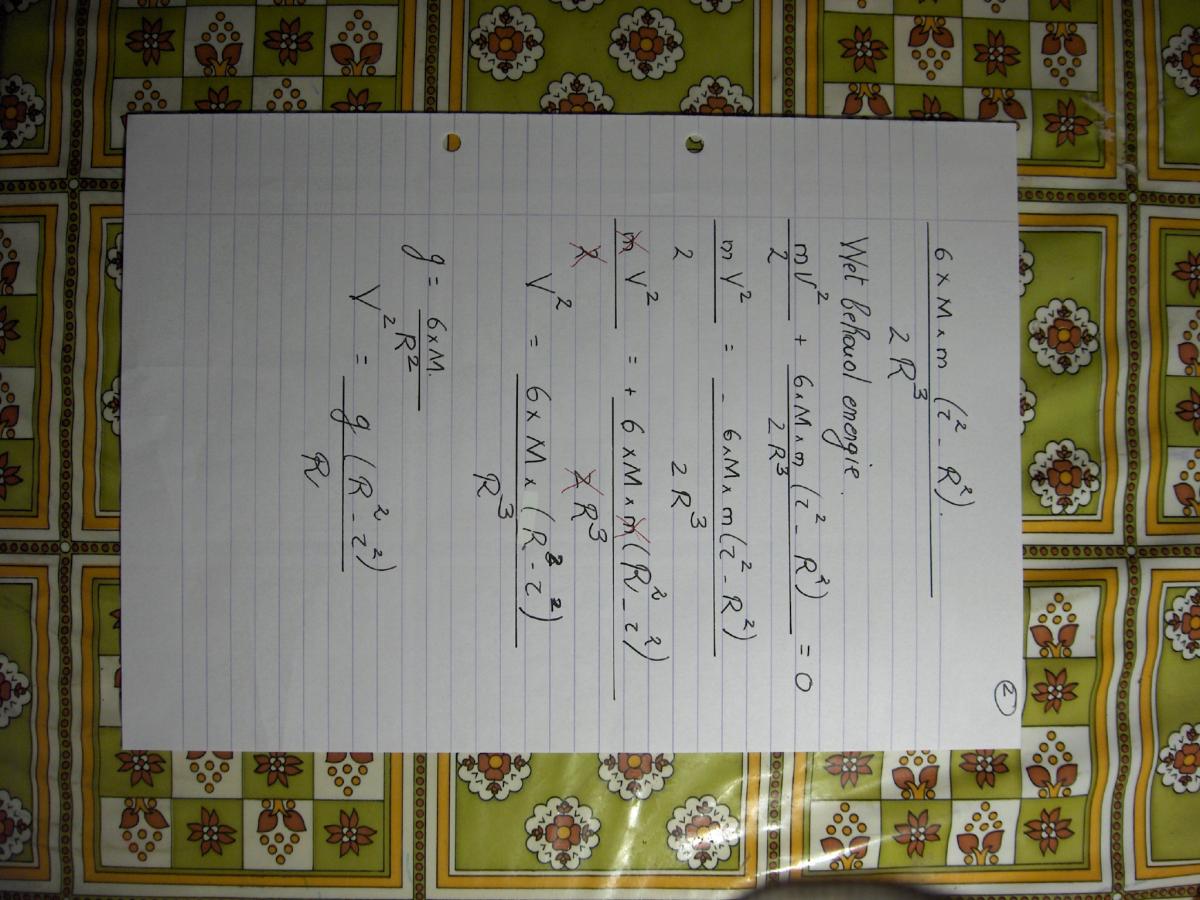 ②
6 × M × m (r² - R²).
2 R³
Wet behoud energie.
mV² + 6×M×m (r² - R²) = 0
2 2R³
mV² = - 6×M×m (r² - R²)
2 2 R³
m V² = + 6×M×m (R² - r²)
2 2 R³
V² = 6 × M × (R² - r²)
R³
g = 6×M.
R²
V² = g (R² - r²)
R